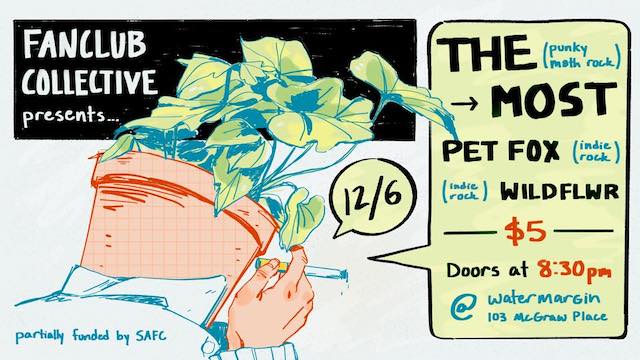 FANCLUB
COLLECTIVE
presents...
THE (punky
math rock)
→ MOST
PET FOX (indie
rock)
(indie
rock) WILDFLWR
$5
Doors at 8:30pm
@ watermargin
103 McGraw Place
12/6
partially funded by SAFC